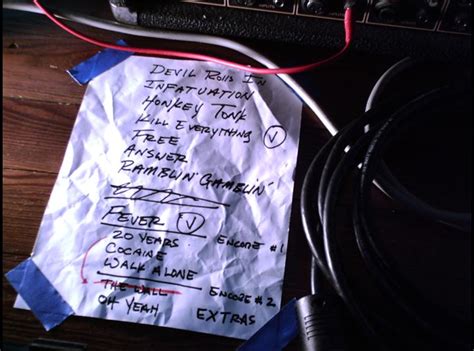 DEVIL ROLLS IN
INFATUATION
HONKEY TONK
KILL EVERYTHING V
FREE
ANSWER
RAMBLIN' GAMBLIN'
FEVER V
20 YEARS ENCORE #1
COCAINE
WALK ALONE
THE WALL ENCORE #2
OH YEAH EXTRAS